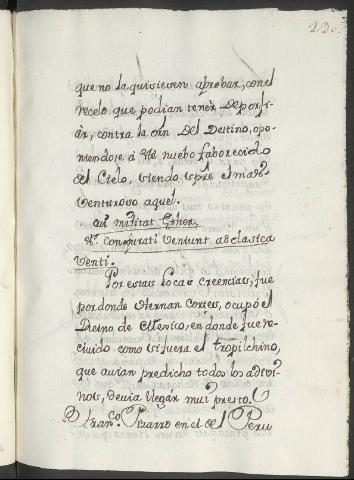 que no la quisiesen aprobar, con el
recelo que podian tener de porfi-
àr, contra la orn Del Destino, opo-
niendose á este nuebo faborecido
del Cielo, siendo spre el mas
Venturoso aquel.
cui militat Ether,
et conjurati veniunt ad clasica
venti.
Por estas locas creencias, fue
por donde Hernan Cortes, ocupó el
Reino de Mexico, en donde fue re-
civido como si fuera el
que avian predicho todos los adevi-
nos, devia llegár mui presto.
Franco. Pizarro en el del Peru